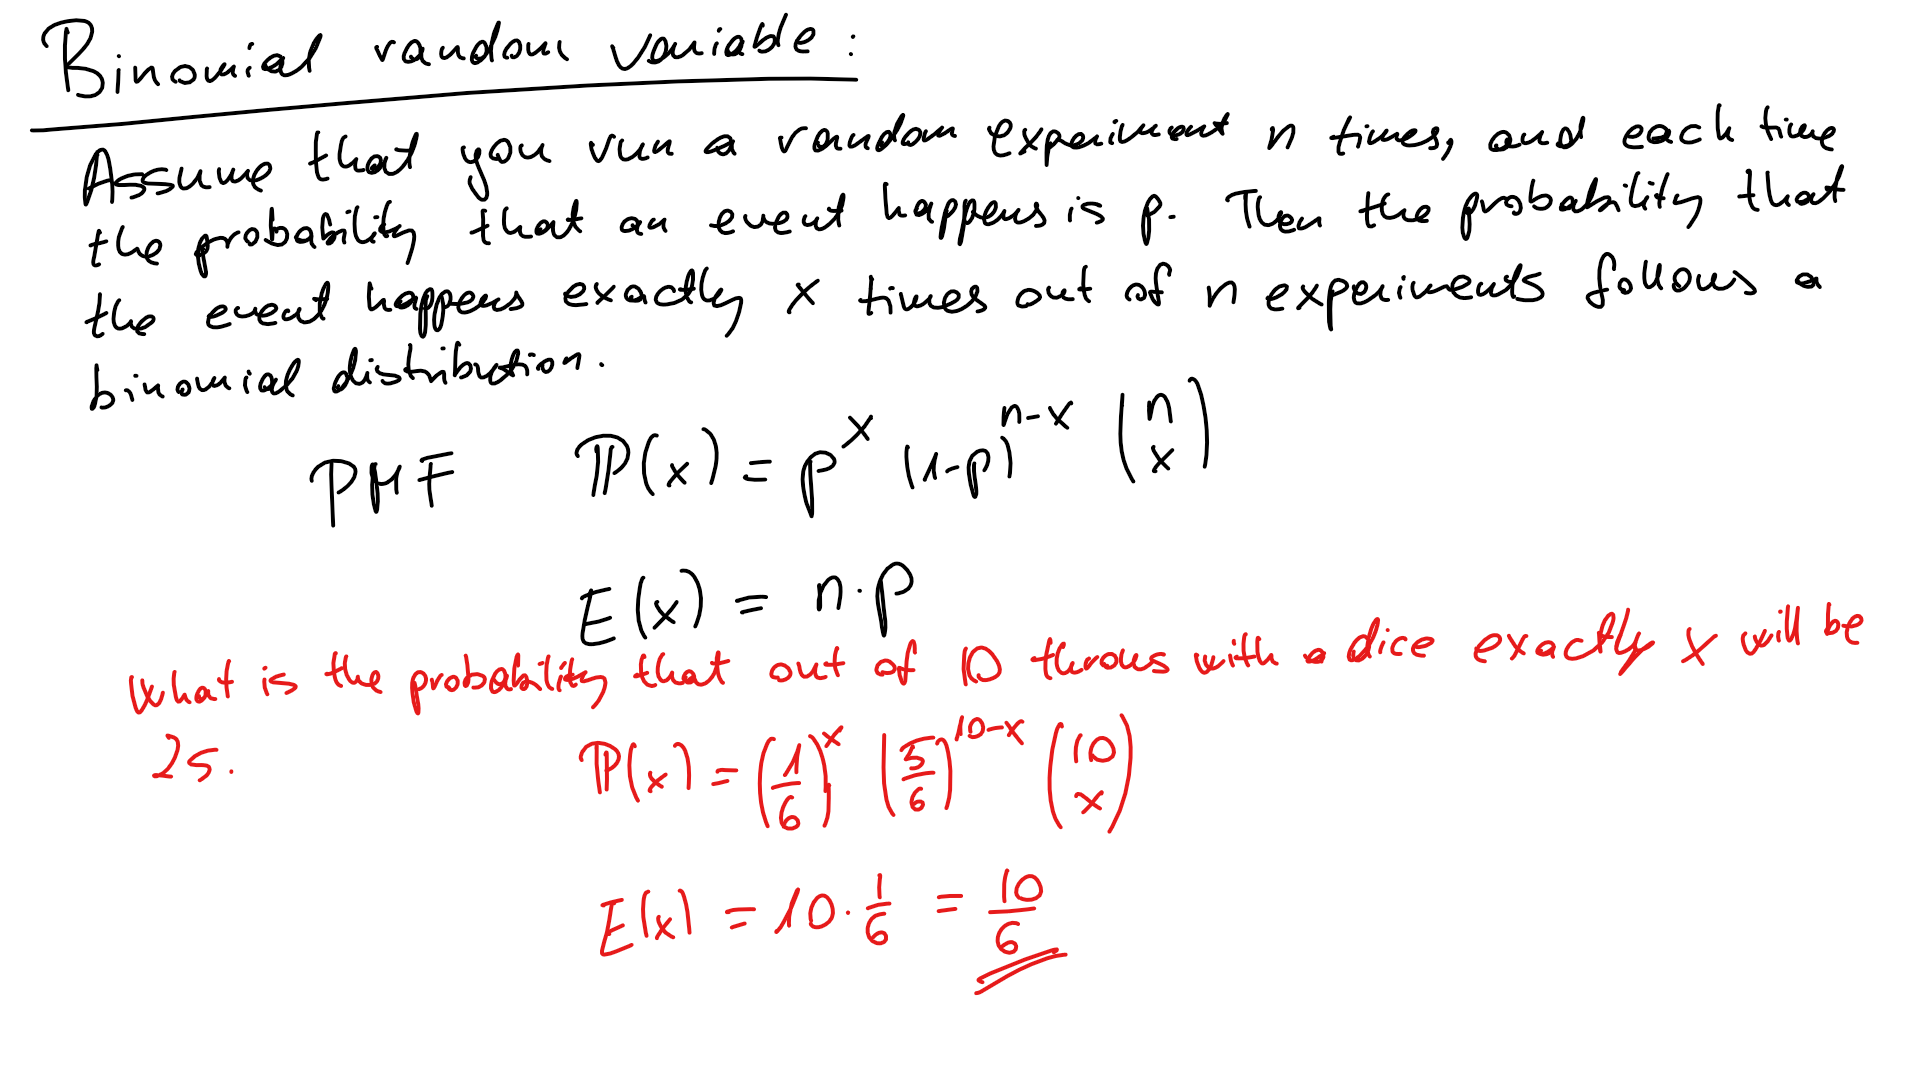 Binomial random variable :
Assume that you run a random experiment n times, and each time
the probability that an event happens is p. Then the probability that
the event happens exactly x times out of n experiments follows a
binomial distribution.
PMF ℙ(x) = p^x (1-p)^{n-x} \binom{n}{x}
E(x) = n·p
What is the probability that out of 10 throws with a dice exactly x will be
2s.
ℙ(x) = (1/6)^x (5/6)^{10-x} \binom{10}{x}
E(x) = 10·1/6 = 10/6